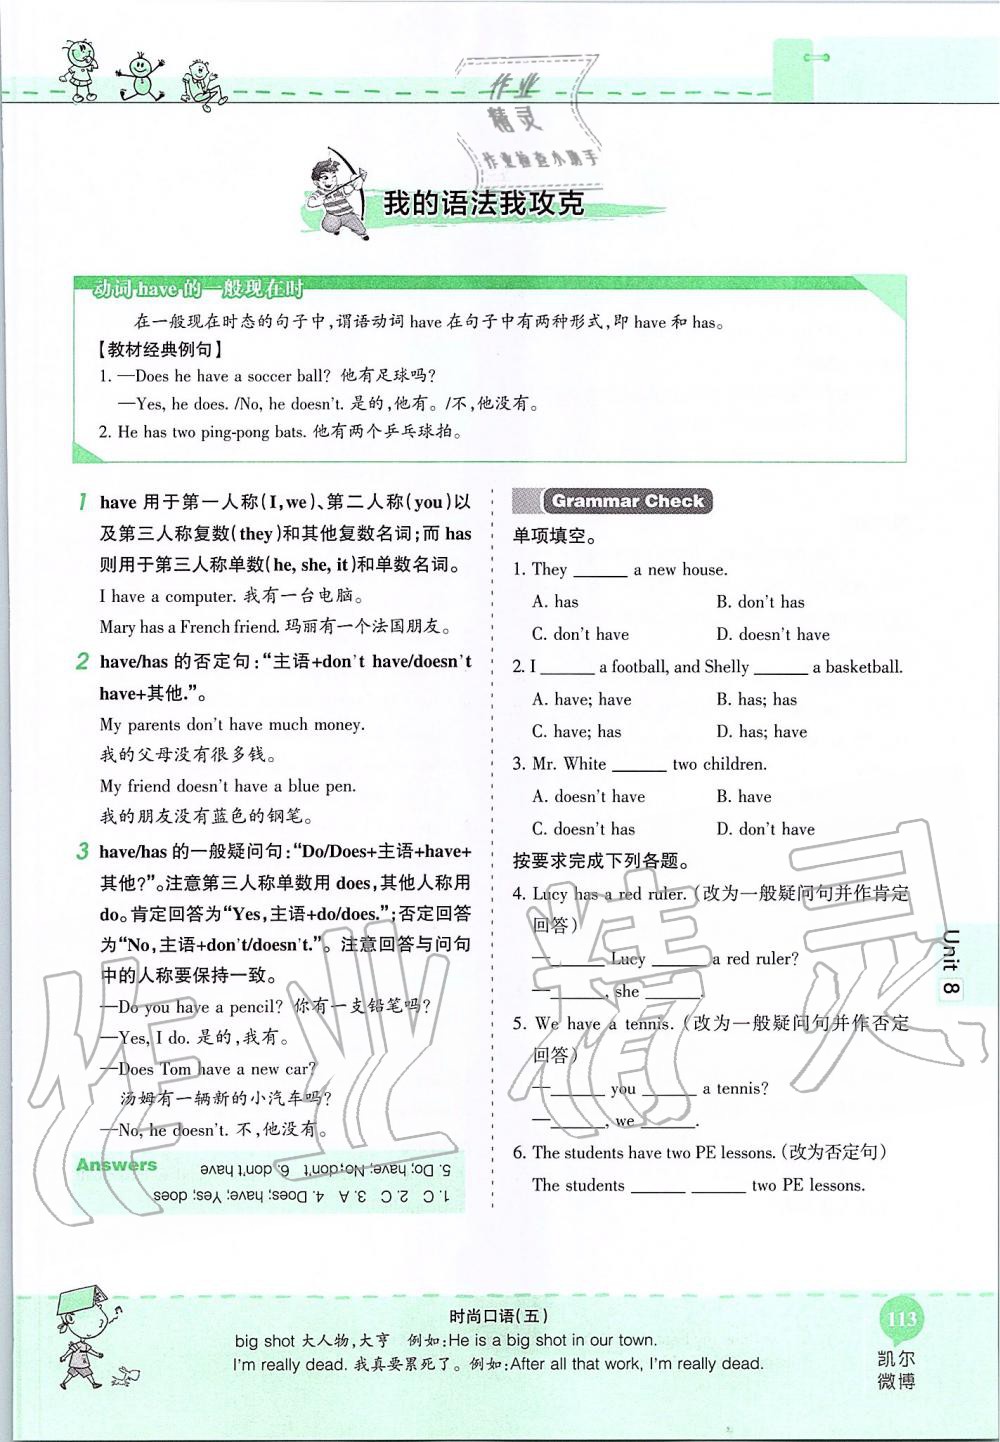 作业
精灵
作业检查小助手
我的语法我攻克
动词 have 的一般现在时
在一般现在时态的句子中,谓语动词 have 在句子中有两种形式,即 have 和 has。
【教材经典例句】
1. —Does he have a soccer ball? 他有足球吗?
—Yes, he does. /No, he doesn't. 是的,他有。/不,他没有。
2. He has two ping-pong bats. 他有两个乒乓球拍。
1 have 用于第一人称(I,we)、第二人称(you)以
及第三人称复数(they)和其他复数名词;而 has
则用于第三人称单数(he, she, it)和单数名词。
I have a computer. 我有一台电脑。
Mary has a French friend. 玛丽有一个法国朋友。
2 have/has 的否定句:“主语+don't have/doesn't
have+其他.”。
My parents don't have much money.
我的父母没有很多钱。
My friend doesn't have a blue pen.
我的朋友没有蓝色的钢笔。
3 have/has 的一般疑问句:“Do/Does+主语+have+
其他?”。注意第三人称单数用 does,其他人称用
do。肯定回答为“Yes,主语+do/does.”;否定回答
为“No,主语+don't/doesn't.”。注意回答与问句
中的人称要保持一致。
—Do you have a pencil? 你有一支铅笔吗?
—Yes, I do. 是的,我有。
—Does Tom have a new car?
汤姆有一辆新的小汽车吗?
—No, he doesn't. 不,他没有。
Answers
1. C 2. C 3. A 4. Does; have; Yes; does
5. Do; have; No; don't 6. don't have
Grammar Check
单项填空。
1. They ______ a new house.
A. has B. don't has
C. don't have D. doesn't have
2. I ______ a football, and Shelly ______ a basketball.
A. have; have B. has; has
C. have; has D. has; have
3. Mr. White ______ two children.
A. doesn't have B. have
C. doesn't has D. don't have
按要求完成下列各题。
4. Lucy has a red ruler. (改为一般疑问句并作肯定
回答)
—______ Lucy ______ a red ruler?
—______, she ______.
5. We have a tennis. (改为一般疑问句并作否定
回答)
—______ you ______ a tennis?
—______, we ______.
6. The students have two PE lessons. (改为否定句)
The students ______ ______ two PE lessons.
Unit 8
作业精灵
时尚口语(五)
big shot 大人物,大亨 例如:He is a big shot in our town.
I'm really dead. 我真要累死了。例如:After all that work, I'm really dead.
113
凯尔
微博